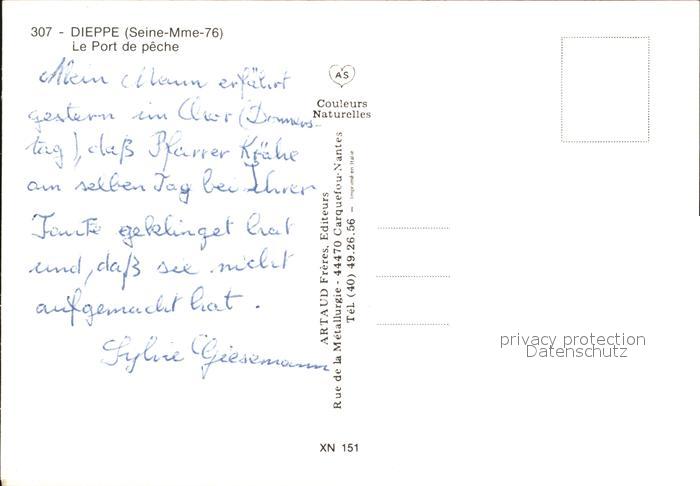 307 - DIEPPE (Seine-Mme-76)
Le Port de pêche
Mein Mann erfährt
gestern im Chor (Donners-
tag), daß Pfarrer Krähe
am selben Tag bei Ihrer
Tante geklinget hat
und, daß sie nicht
aufgemacht hat.
Sylvie Giesemann
AS
Couleurs
Naturelles
ARTAUD Frères, Editeurs
Rue de la Métallurgie - 44470 Carquefou-Nantes
Tél. (40) 49.26.56 - Imprimé en Italie
privacy protection
Datenschutz
XN 151